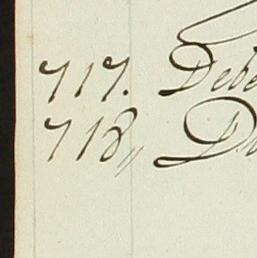 717. Debe
718,, D